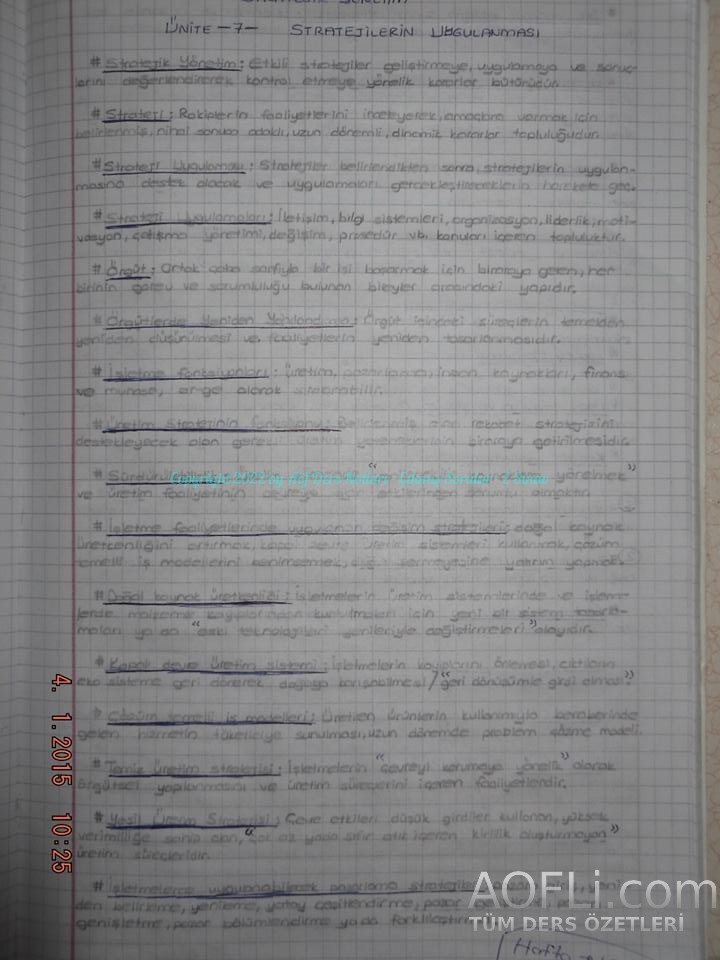 ÜNİTE -7- STRATEJİLERİN UYGULANMASI
# Stratejik Yönetim: Etkili stratejiler geliştirmeye, uygulamaya ve sonuç-
larını değerlendirerek kontrol etmeye yönelik kararlar bütünüdür.
# Strateji: Rakiplerin faaliyetlerini inceleyerek, amaçlara varmak için
belirlenmiş, nihai sonuca odaklı, uzun dönemli, dinamik kararlar topluluğudur.
# Strateji Uygulaması: Stratejiler belirlendikten sonra, stratejilerin uygulan-
masına destek olacak ve uygulamaları gerçekleştireceklerin harekete geç.
# Strateji Uygulamaları: İletişim, bilgi sistemleri, organizasyon, liderlik, moti-
vasyon, çatışma yönetimi, değişim, prosedür vb. konuları içeren topluluktur.
# Örgüt: Ortak çaba sarfıyla bir işi başarmak için biraraya gelen, her
birinin görev ve sorumluluğu bulunan bireyler arasındaki yapıdır.
# Örgütlerde Yeniden Yapılandırma: Örgüt içindeki süreçlerin temelden
yeniden düşünülmesi ve faaliyetlerin yeniden tasarlanmasıdır.
# İşletme fonksiyonları: Üretim, pazarlama, insan kaynakları, finans
ve muhase, ar-ge olarak sıralanabilir.
# Üretim Stratejinin fonksiyonu: Belirlenmiş olan rekabet stratejisini
destekleyecek olan gerekli üretim yeteneklerinin biraraya getirilmesidir.
# Sürdürülebilirlik yönetmek"
ve üretim faaliyetinin çevreye olan etkilerinden sorumlu olmaktır.
# İşletme faaliyetlerinde uygulanan değişim stratejileri; doğal kaynak
üretkenliğini artırmak, kapalı devre üretim sistemleri kullanmak, çözüm
temelli iş modellerini benimsemek, doğa sermayesine yatırım yapmak.
# Doğal kaynak üretkenliği: İşletmelerin üretim sistemlerinde ve işlem-
lerde malzeme kayıplarından kurtulmaları için yeni bir sistem tasarla-
maları ya da "eski teknolojileri yenileriyle değiştirmeleri" olayıdır.
# Kapalı devre üretim sistemi: İşletmelerin kayıplarını önlemesi, çıktıların
eko sisteme geri dönerek doğaya karışabilmesi / "geri dönüşümle girdi olması"
# Çözüm temelli iş modelleri: Üretilen ürünlerin kullanımıyla beraberinde
gelen hizmetin tüketiciye sunulması, uzun dönemde problem çözme modeli.
# Temiz üretim stratejisi: İşletmelerin "çevreyi korumaya yönelik" olarak
örgütsel yapılanmasını ve üretim süreçlerini içeren faaliyetlerdir.
# Yeşil Üretim Stratejisi: Çevre etkileri düşük girdiler kullanan, yüksek
verimliliğe sahip olan, "çok az yada sıfır atık içeren kirlilik oluşturmayan"
üretim süreçleridir.
# İşletmelerce uygulanabilecek pazarlama stratejileri
den belirleme, yenileme, yatay çeşitlendirme, pazar geliştirme,
genişletme, pazar bölümlendirme ya da farklılaştır
Hafta
4. 1.2015 10:25
AOFLi.com
TÜM DERS ÖZETLERİ